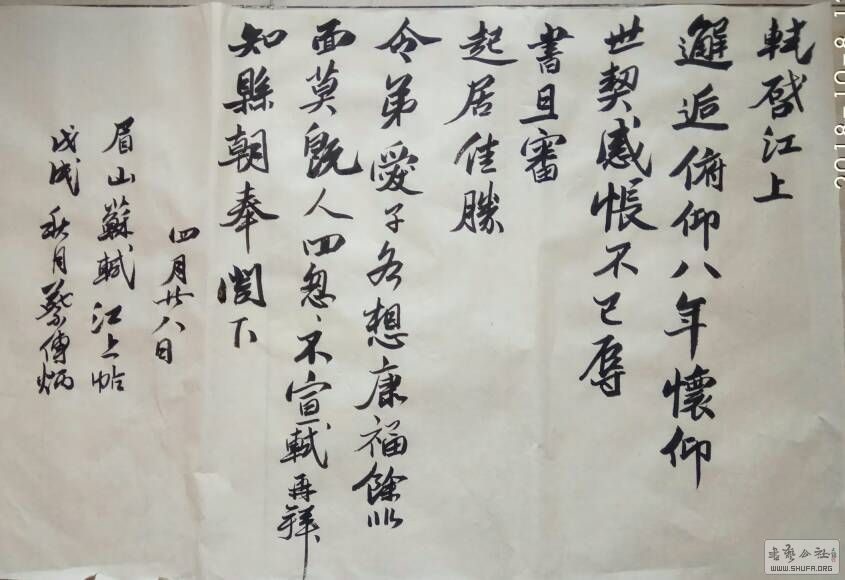 軾啓江上
邂逅俯仰八年懷仰
世契感悵不已辱
書且審
起居佳勝
令弟愛子各想康福餘非
面莫既人回怱〻不宣軾再拜
知縣朝奉閤下
四月廿八日
眉山蘇軾江上帖
戊戌秋月蔡傳炳
2018-10-8
書藝公社
WWW.SHUFA.ORG